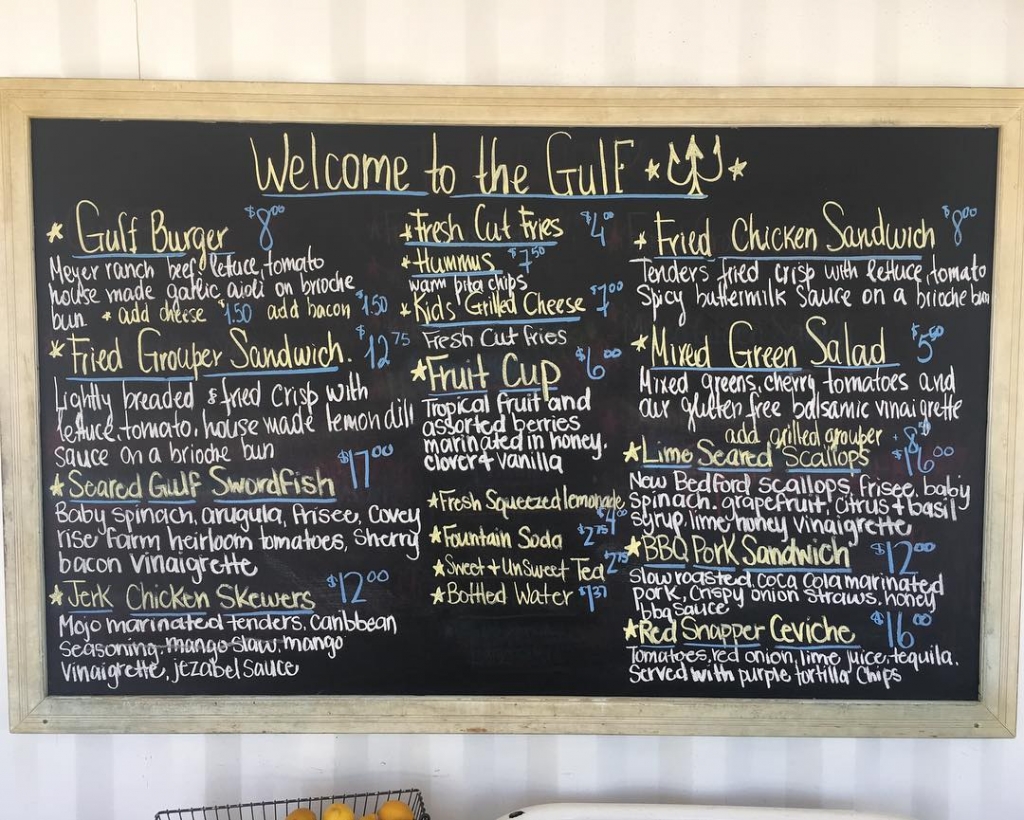 Welcome to the Gulf
* Gulf Burger $8.00
Meyer ranch beef, lettuce, tomato
house made garlic aioli on brioche
bun * add cheese $1.50 add bacon $1.50
* Fried Grouper Sandwich. $12.75
Lightly breaded & fried crisp with
lettuce, tomato, house made lemon dill
sauce on a brioche bun
* Seared Gulf Swordfish $17.00
Baby spinach, arugula, frisee, Covey
rise farm heirloom tomatoes, Sherry
bacon vinaigrette
* Jerk Chicken Skewers $12.00
Mojo marinated tenders, caribbean
seasoning, mango slaw, mango
vinaigrette, jezabel sauce
* Fresh Cut Fries $4.00
* Hummus $7.50
warm pita chips
* Kid's Grilled Cheese $7.00
Fresh Cut fries
* Fruit Cup $6.00
Tropical fruit and
assorted berries
marinated in honey,
clover + vanilla
* Fresh Squeezed lemonade $4.00
* Fountain Soda $2.75
* Sweet + UnSweet Tea 2.75
* Bottled Water $1.37
* Fried Chicken Sandwich $8.00
Tenders fried crisp with lettuce, tomato
Spicy buttermilk sauce on a brioche bun
* Mixed Green Salad $5.50
Mixed greens, cherry tomatoes and
our gluten free balsamic vinaigrette
add grilled grouper + 8.50
* Lime Seared Scallops $16.00
New Bedford scallops, frisee, baby
spinach, grapefruit, citrus + basil
syrup, lime honey vinaigrette
* BBQ Pork Sandwich $12.00
slow roasted, coca cola marinated
pork, crispy onion straws, honey
bbq sauce
* Red Snapper Ceviche $16.00
Tomatoes, red onion, lime juice, tequila.
Served with purple tortilla chips